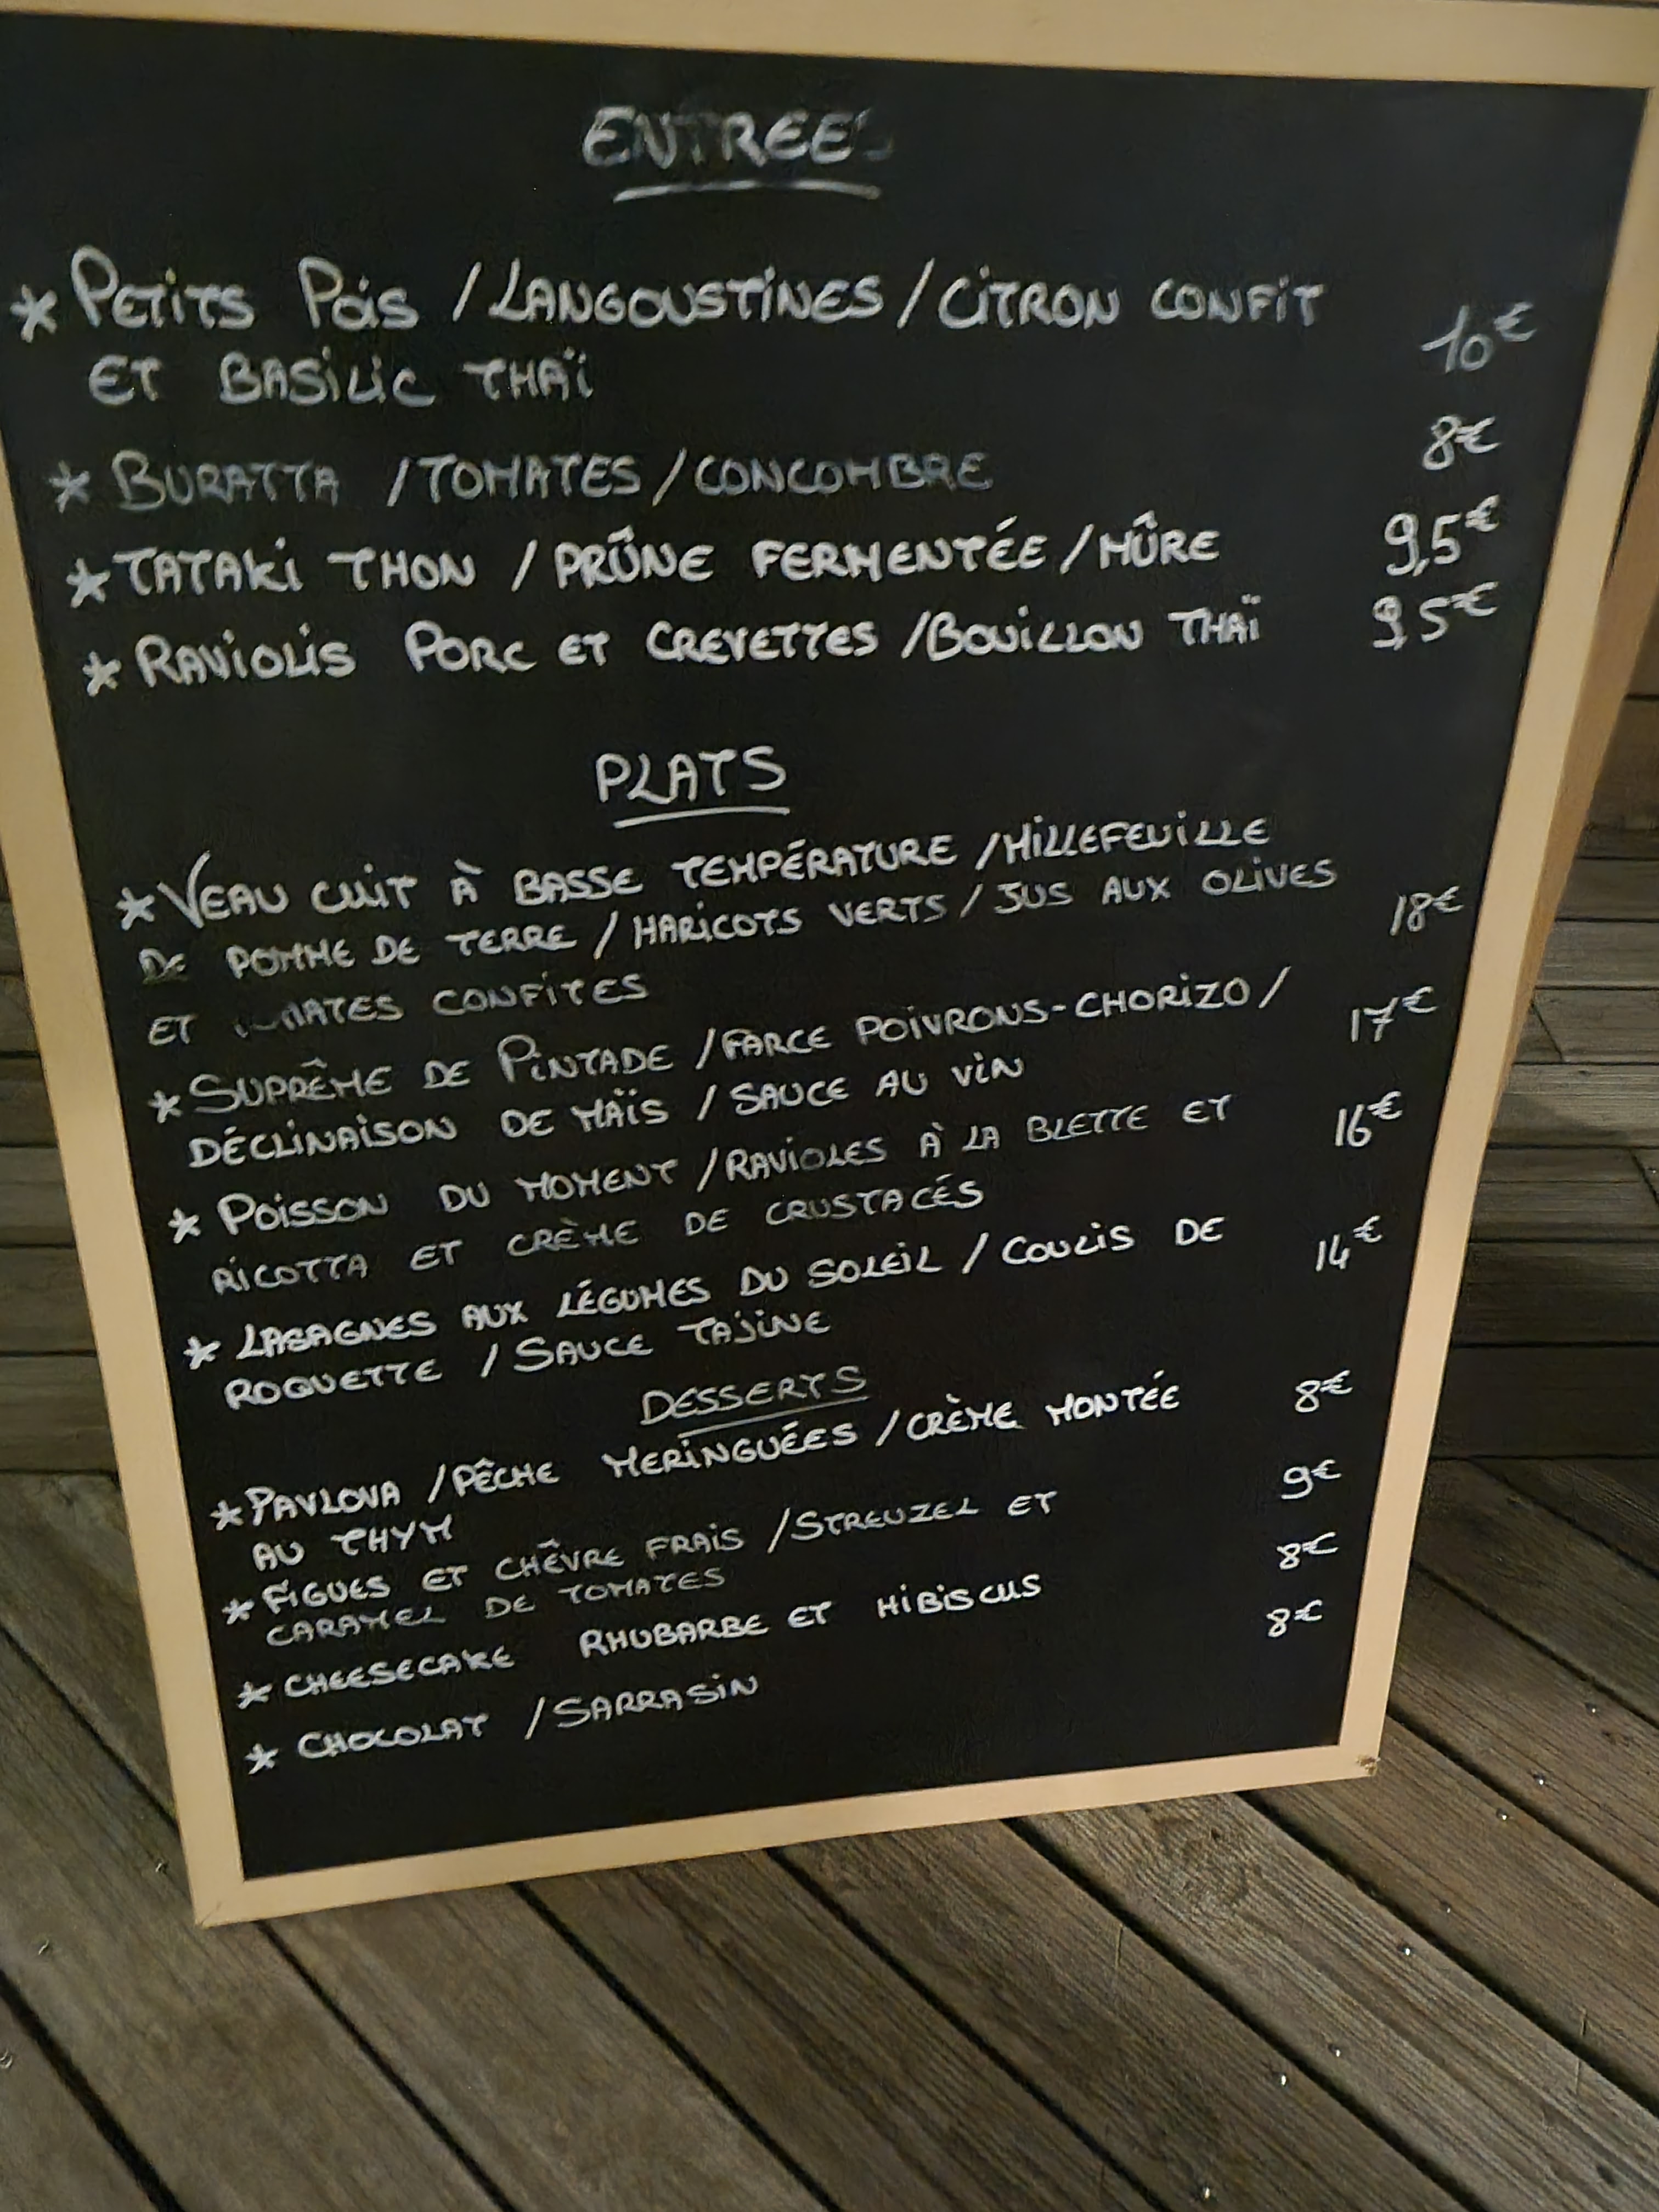 ENTREES
* PETITS POIS / LANGOUSTINES / CITRON CONFIT
ET BASILIC THAÏ 10€
* BURATTA / TOMATES / CONCOMBRE 8€
* TATAKI THON / PRÛNE FERMENTÉE / MÛRE 9,5€
* RAVIOLIS PORC ET CREVETTES / BOUILLON THAÏ 9,5€
PLATS
* VEAU CUIT À BASSE TEMPÉRATURE / MILLEFEUILLE
DE POMME DE TERRE / HARICOTS VERTS / JUS AUX OLIVES 18€
ET TOMATES CONFITES
* SUPRÊME DE PINTADE / FARCE POIVRONS-CHORIZO / 17€
DÉCLINAISON DE MAÏS / SAUCE AU VIN
* POISSON DU MOMENT / RAVIOLES À LA BLETTE ET 16€
RICOTTA ET CRÈME DE CRUSTACÉS
* LASAGNES AUX LÉGUMES DU SOLEIL / COULIS DE 14€
ROQUETTE / SAUCE TAJINE
DESSERTS
* PAVLOVA / PÊCHE MERINGUÉES / CRÈME MONTÉE 8€
AU THYM
* FIGUES ET CHÊVRE FRAIS / STREUZEL ET 9€
CARAMEL DE TOMATES
* CHEESECAKE RHUBARBE ET HIBISCUS 8€
* CHOCOLAT / SARRASIN 8€